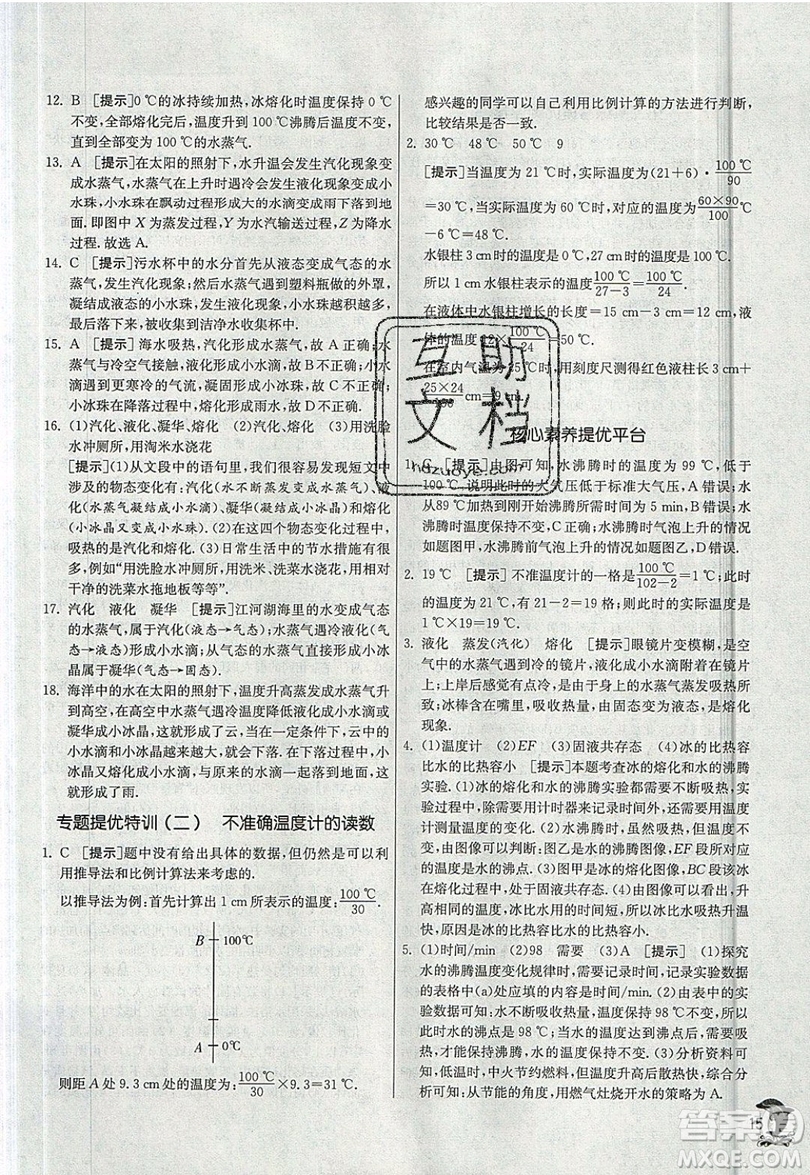 12. B [提示]0 ℃的冰持续加热，冰熔化时温度保持 0 ℃
不变，全部熔化完后，温度升到 100 ℃沸腾，温度不变，
直到全部变为 100 ℃的水蒸气.
13. A [提示]在太阳的照射下，水升温会发生汽化现象变
成水蒸气，水蒸气在上升时遇冷会发生液化现象变成小
水珠，小水珠在飘动过程形成大的水滴变成雨落到地
面. 即图中 X 为蒸发过程，Y 为水汽输送过程，Z 为降水
过程. 故选 A.
14. C [提示]污水杯中的水分首先从液态变成气态的水
蒸气，发生汽化现象；然后水蒸气遇到塑料瓶做的外罩，
凝结成液态的小水珠，发生液化现象；小水珠越聚越大，
最后落下来，被收集到洁净水收集杯中.
15. A [提示] 海水吸热，汽化形成水蒸气，故 A 正确；水
蒸气与冷空气接触，液化形成小水滴，故 B 不正确；小水
滴遇到更寒冷的气流，凝固形成小冰珠，故 C 不正确；
小冰珠在降落过程中，熔化形成雨水，故 D 不正确.
16. (1)汽化、液化、凝华、熔化 (2)汽化、熔化 (3)用洗脸
水冲厕所，用淘米水浇花
[提示](1)从文段中的语句里，我们很容易发现短文中
涉及的物态变化有：汽化(水不断蒸发变成水蒸气)、液化
(水蒸气凝结成小水滴)、凝华(凝结成小冰晶)和熔化
(小冰晶又变成小水珠). (2)在这四个物态变化过程中，
吸热的是汽化和熔化. (3)日常生活中的节水措施有很
多，例如“用洗脸水冲厕所，用洗米、洗菜水浇花，用相对
干净的洗菜水拖地板等等”.
17. 汽化 液化 凝华 [提示]江河湖海里的水变成气态
的水蒸气，属于汽化(液态→气态)；水蒸气遇冷又变成
小水滴，属于液化(气态→液态). 从气态的水蒸气直接变成小冰
晶属于凝华(气态→固态).
18. 海洋中的水在太阳的照射下，温度升高蒸发变成水蒸气升
到高空，在高空中水蒸气遇冷温度降低液化成小水滴或
凝华成小冰晶，就形成了云，当在一定条件下，云中的小
水滴和小冰晶越来越大，就会下落. 在下落过程中，小
冰晶又熔化成小水滴，与原来的小水滴一起落到地面，
就形成了雨.
专题提优特训(二) 不准确温度计的读数
1. C [提示]题中没有给出具体的数据，但仍然是可以利
用推导法和比例计算法来考虑的.
以推导法为例：首先计算出 1 cm 所表示的温度：100 ℃/30.
B 100℃
A 0℃
则距 A 处 9.3 cm 处的温度为：100 ℃/30×9.3＝31 ℃.
感兴趣的同学可以自己利用比例计算的方法进行判断，
比较结果是否一致.
2. 30 ℃ 48 ℃ 50 ℃ 9
[提示]当温度为 21 ℃时，实际温度为(21＋6)·100 ℃/90
＝30 ℃，当实际温度为 60 ℃时，对应的温度为60×90/100℃
－6 ℃＝48 ℃.
水银柱 3 cm 时的温度是 0 ℃，27 cm 时的温度是 100℃.
所以 1 cm 水银柱表示的温度是100 ℃/27－3＝100 ℃/24.
在液体中水银柱增长的长度＝15 cm－3 cm＝12 cm，液
体的温度 12×100 ℃/24＝50 ℃.
在室内气温为 25℃时，用刻度尺测得红色液柱长 3 cm＋
25×24/100 cm＝9 cm.
核心素养提优平台
1. C [提示]由图可知，水沸腾时的温度为 99 ℃，低于
100 ℃，说明此时的大气压低于标准大气压，A 错误；水
从89 ℃升温到刚开始沸腾所需时间为 5 min，B 错误；
水沸腾时温度不变，C 正确；水沸腾时气泡上升的情况
如图甲，水沸腾前气泡上升的情况如图乙，D 错误.
2. 19 ℃ [提示] 不准温度计的一格是100 ℃/102－2＝1 ℃；此时
的温度为 21 ℃，有 21－2＝19(格)，所以实际温度是
1 ℃×19＝19 ℃.
3. 液化 蒸发(汽化) 熔化 [提示]眼镜片变模糊，是空
气中的水蒸气遇到冷的镜片，液化成小水滴附在镜片
上；上岸后感觉有点冷，是皮肤上的水蒸发吸热，带走了
热；冰棒含在嘴里，吸收热量，由固态变为液态，是熔化
现象.
4. (1)温度计 (2)EF (3)固液共存态 (4)冰的比热容
比水的比热容小 [提示]本题考查冰的熔化和水的沸腾
实验. (1)冰的熔化和水的沸腾实验都需要不断吸热，实
验时，除了秒表用来记录时间外，还需要温度计，用来
测量温度的变化. (2)水沸腾时，虽然吸热，但温度不
变，由图像可以判断：图乙是水的沸腾，EF 段可看出此
时的温度是水的沸点. (3)图甲是冰的熔化图像，BC 段该冰
处于熔化过程中，处于固液共存态. (4)由图像可以看出，升
高相同的温度，冰比水用的时间短，即冰比水吸热升温
快，原因是冰的比热容比水的比热容小.
5. (1)时间/min (2)98 需要 (3)A [提示] (1)探究
水的沸腾温度变化规律时，还需记录时间，记录实验数据
的表格中(a)处应填的内容是时间/min. (2)由表中的数
据可知：水不断吸热，其温度保持 98 ℃不变，所以
此时水的沸点是 98 ℃；当水的温度达到沸点后，水的沸
腾需要吸热，水需要继续加热. (3)分析资料可
知，低温时，中火节约燃气，温度升高后散热快，综合分
析可知：从节能的角度，用燃气灶烧开水的策略为 A.
互助
文档
huzuoye.com
15
答案
MXQE.COM